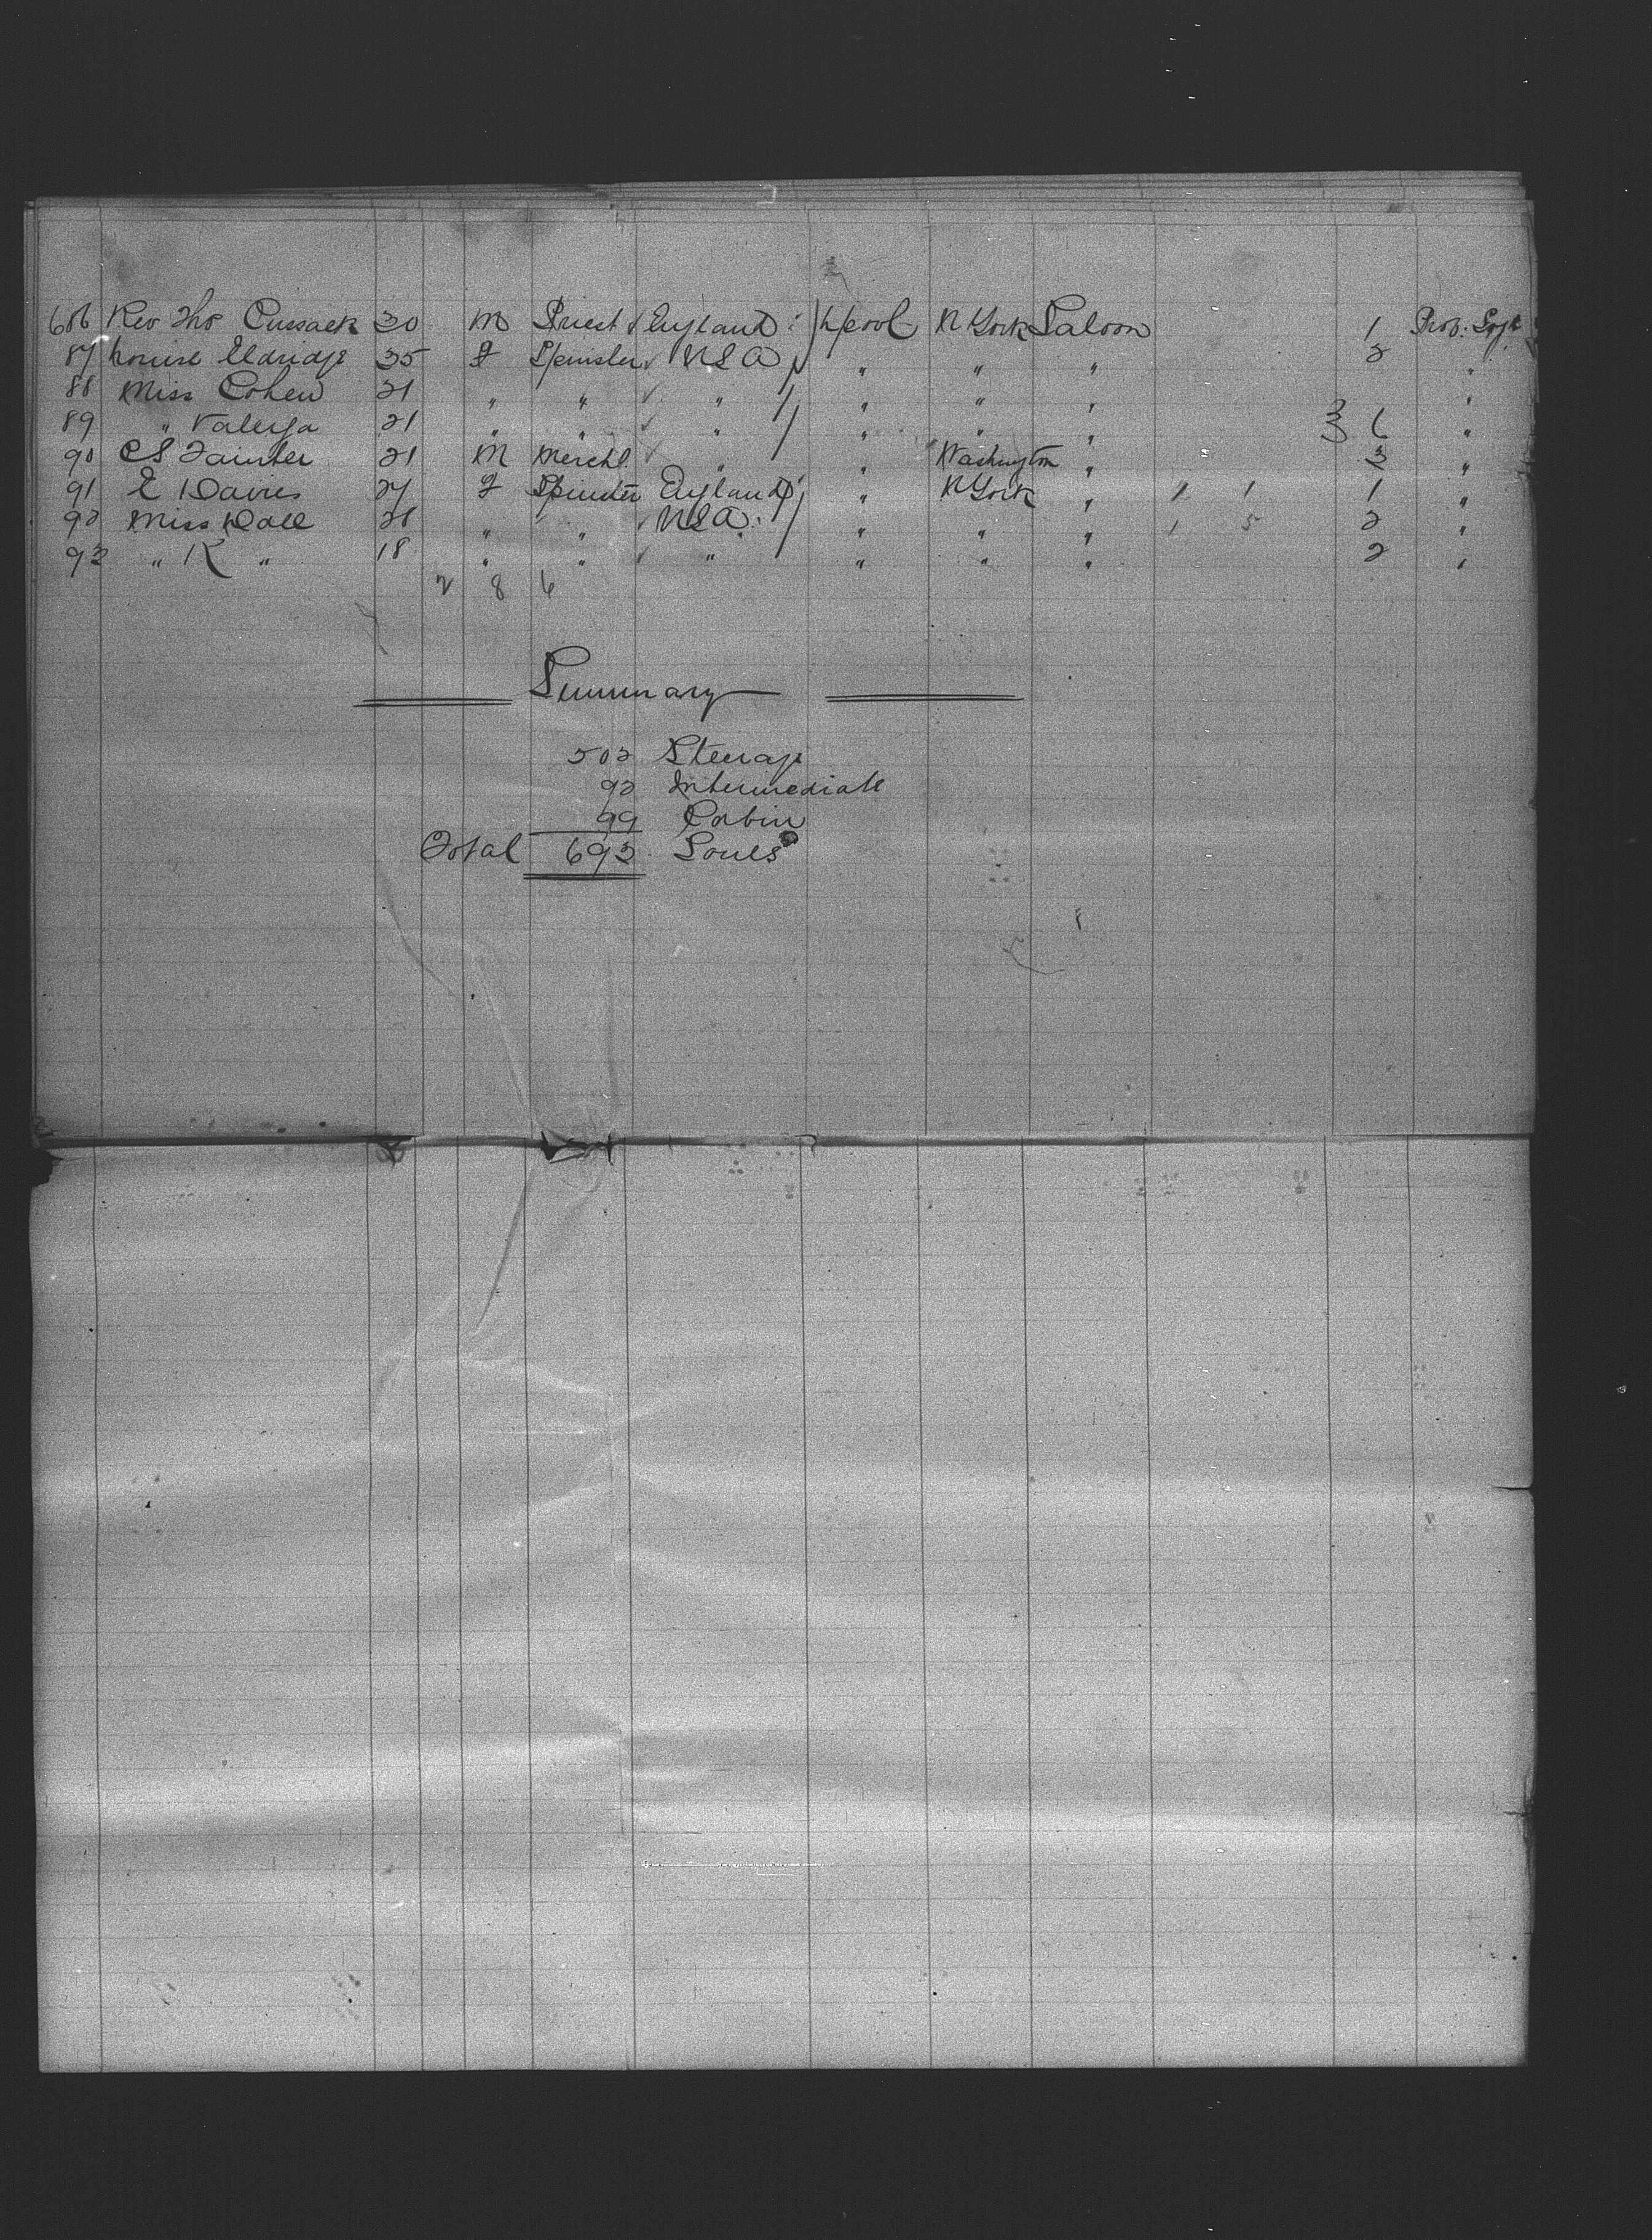 686 Rev Tho Cussack 30 M Priest England L'pool N York Saloon 1 Prob: Soj:
87 Louise Eldridge 35 F Spinster USA " " " 3 "
88 Miss Cohen 21 " " " " " " "
89 " Valerga 21 " " " " " " 6 "
90 C S Tainter 21 M Mercht. " " Washington " 3 "
91 E Davies 27 F Spinster England " N York " 1 1 1 "
92 Miss Dall 28 " " USA " " " 1 5 2 "
93 " K " 18 " " " " " " 2 "
2 8 6
Summary
502 Steerage
92 Intermediate
99 Cabin
Total 693 Souls